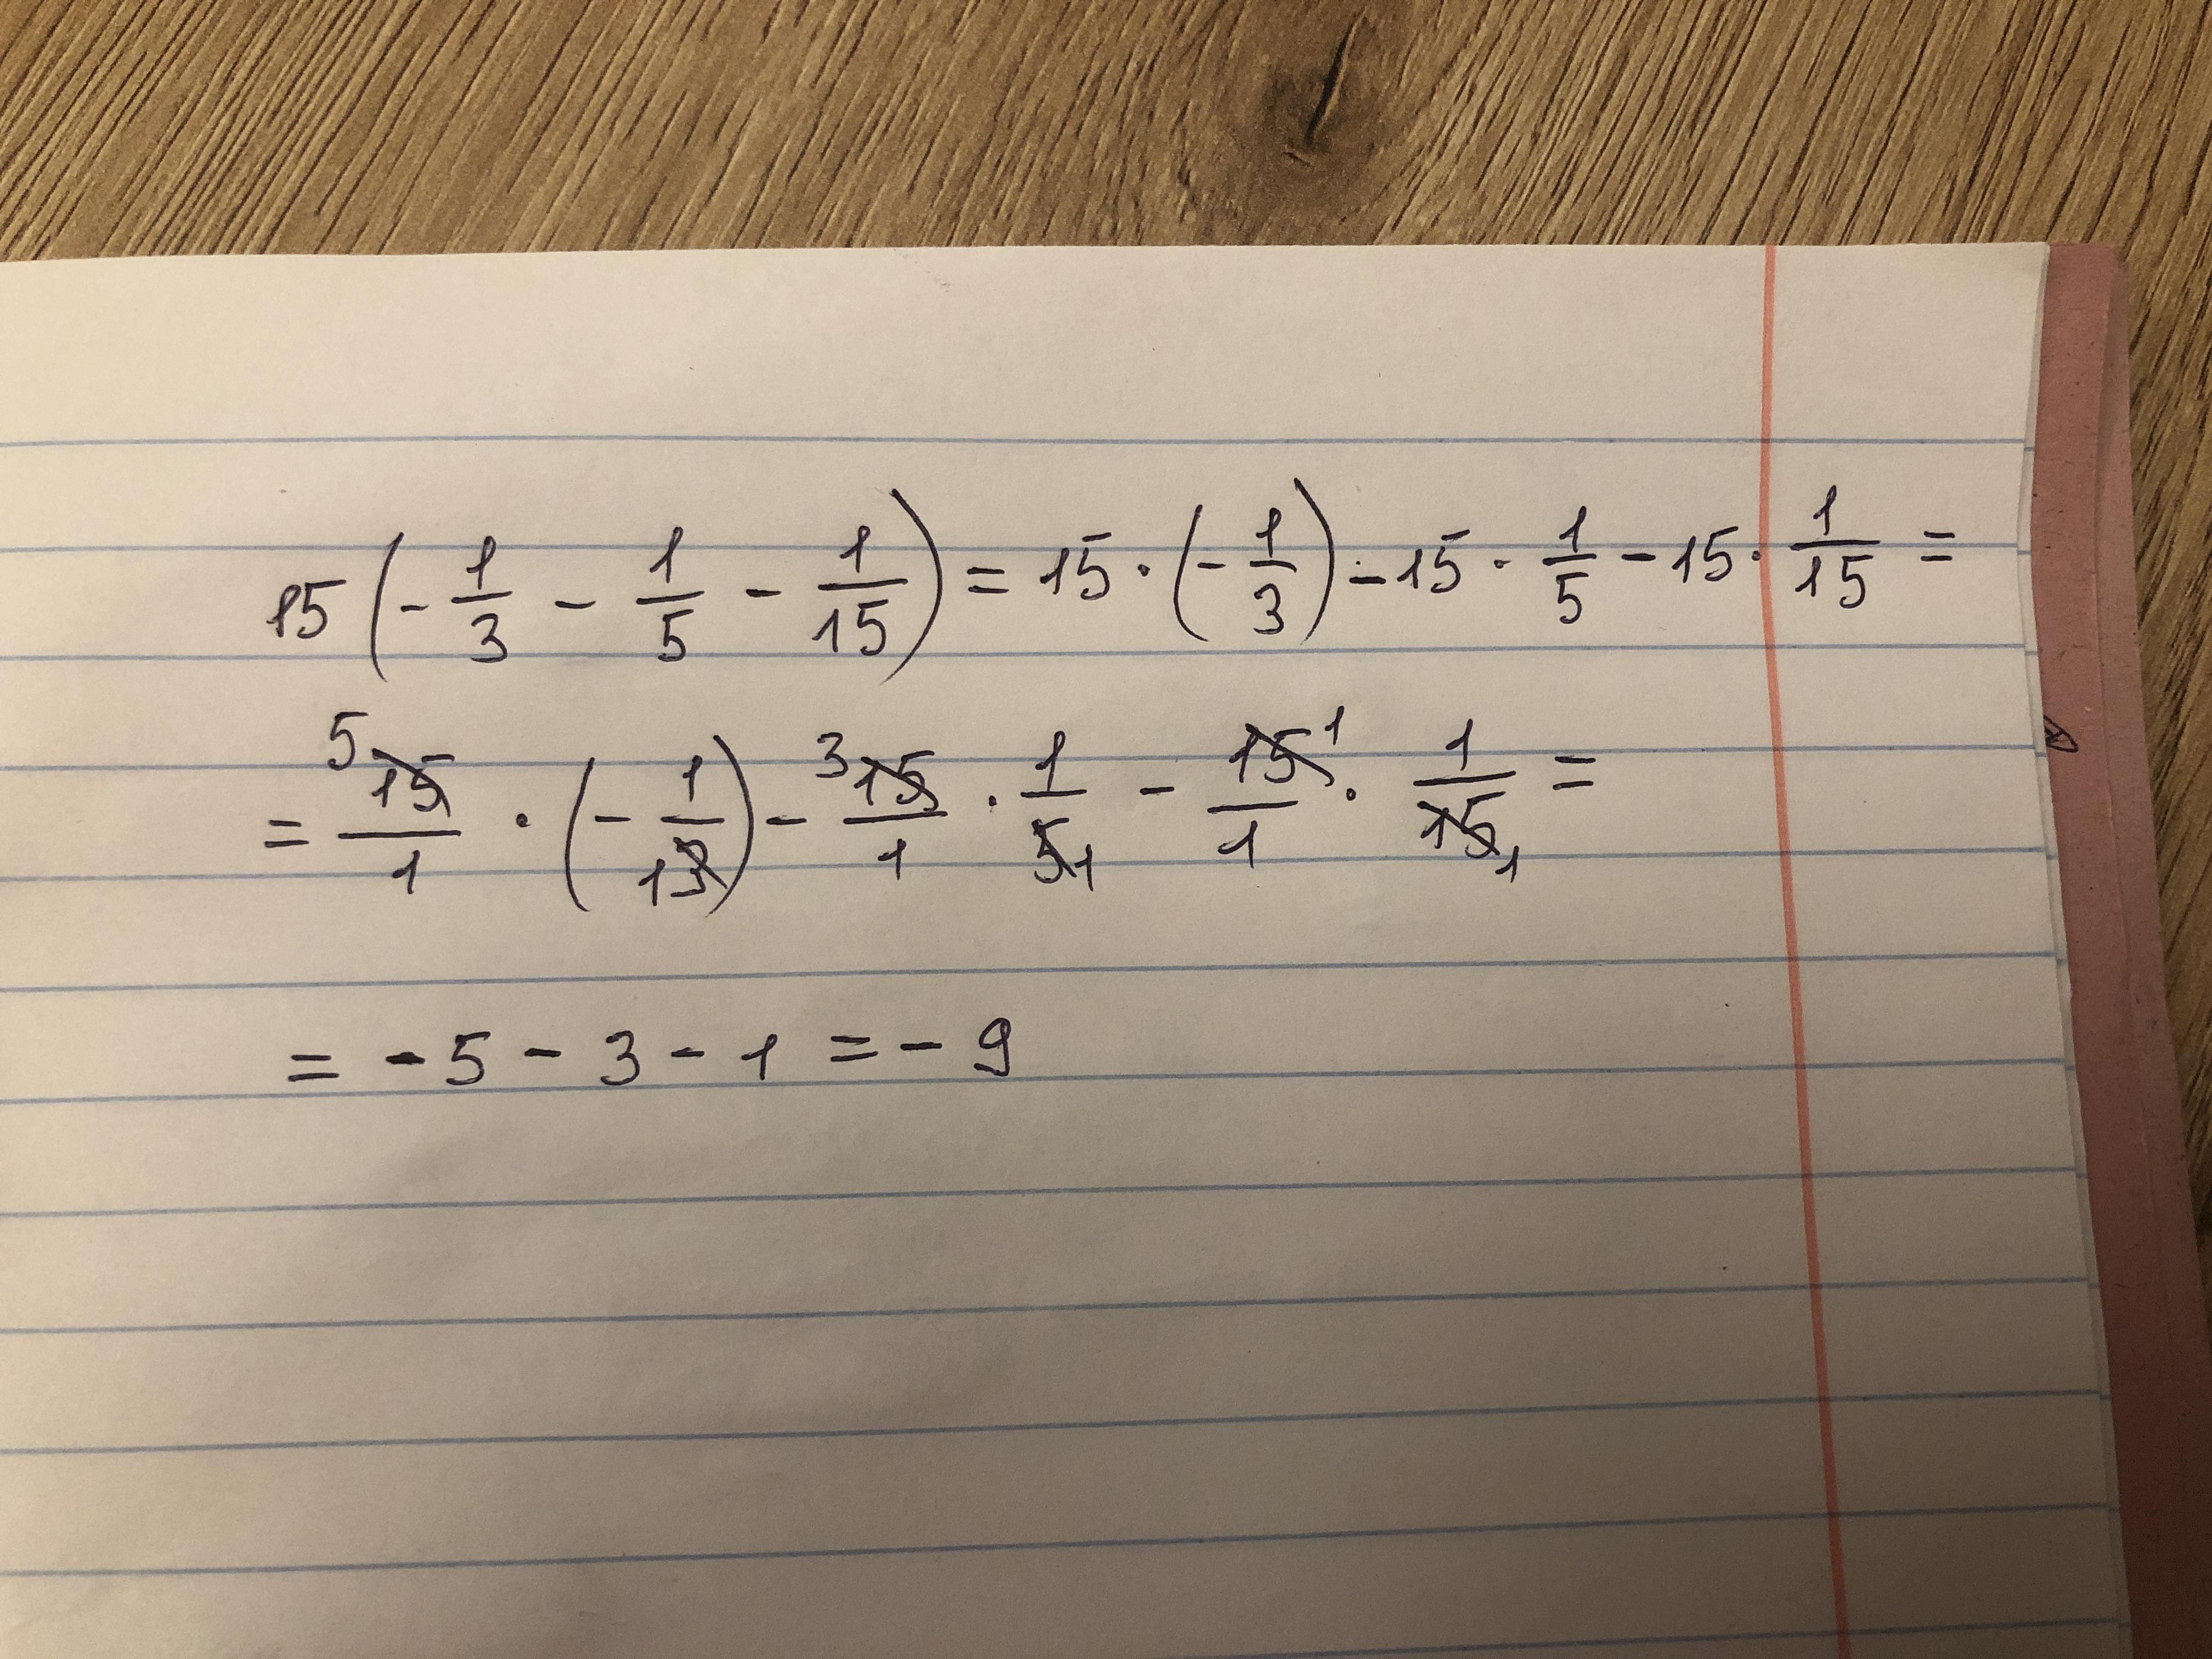 15 (- 1/3 - 1/5 - 1/15) = 15 · (- 1/3) - 15 · 1/5 - 15 · 1/15 =
= 5 15/1 · (- 1/1 3) - 3 15/1 · 1/5 1 - 15 1/1 · 1/15 1 =
= - 5 - 3 - 1 = - 9